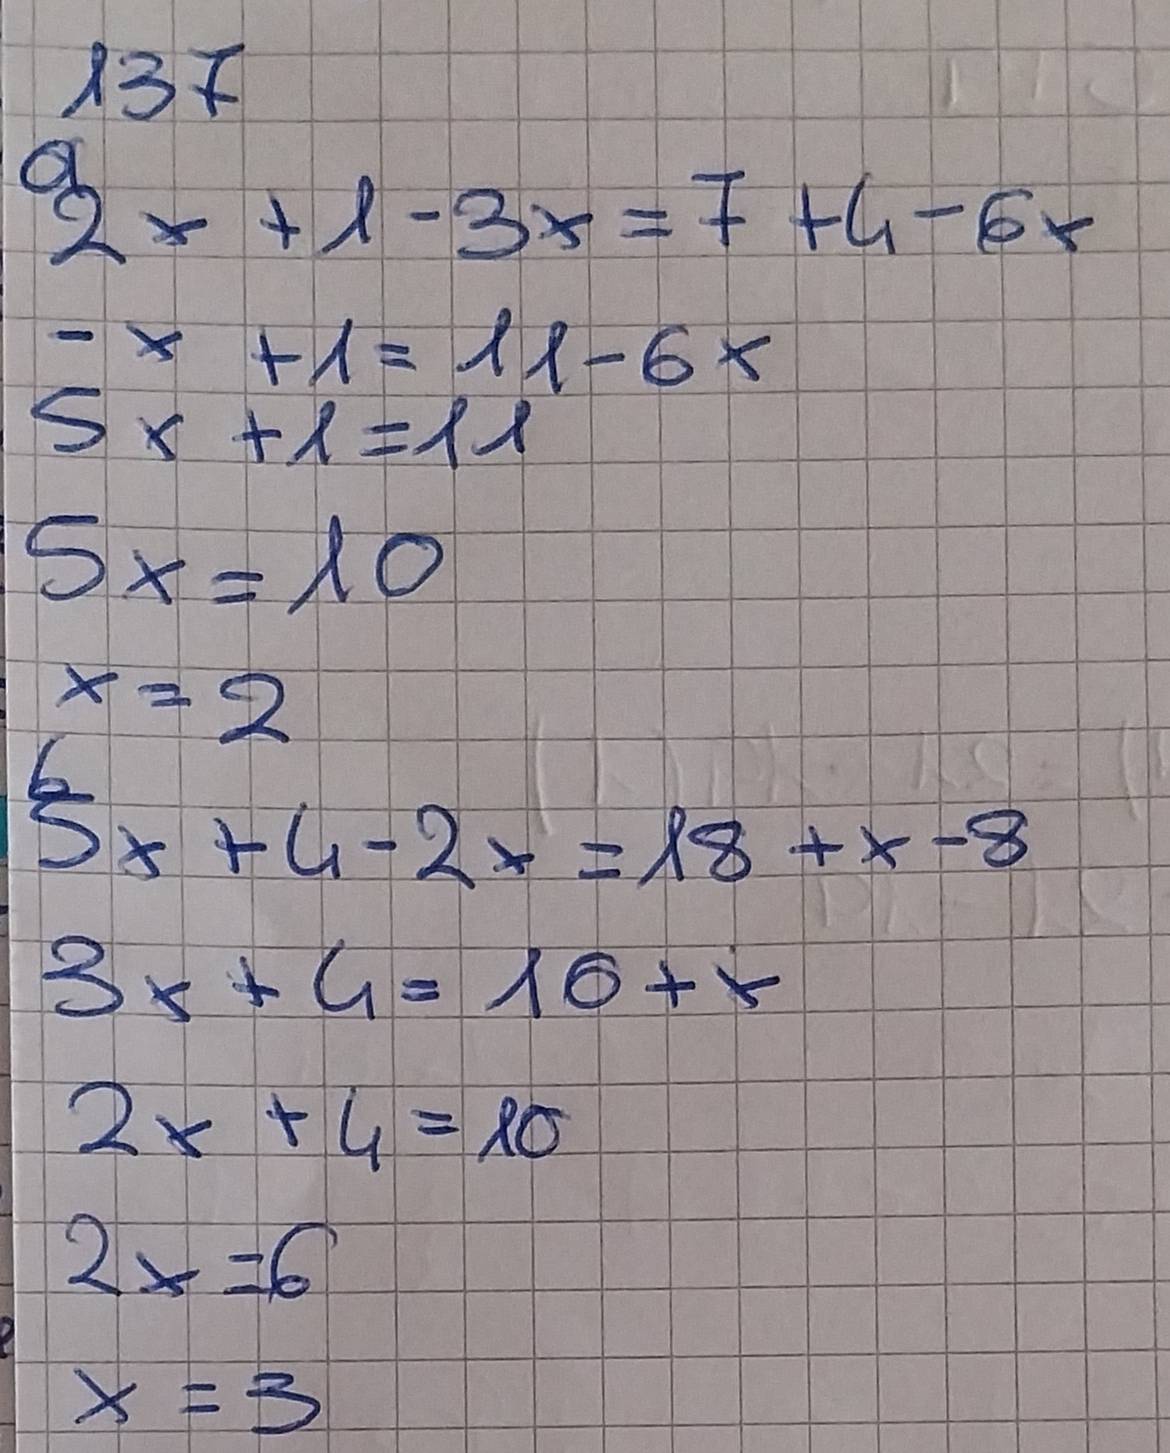 137
a
2x +1-3x=7+4-6x
-x +1=11-6x
5x +1=11
5x=10
x=2
b
5x+4-2x=18+x-8
3x+4=10+x
2x+4=10
2x=6
x=3